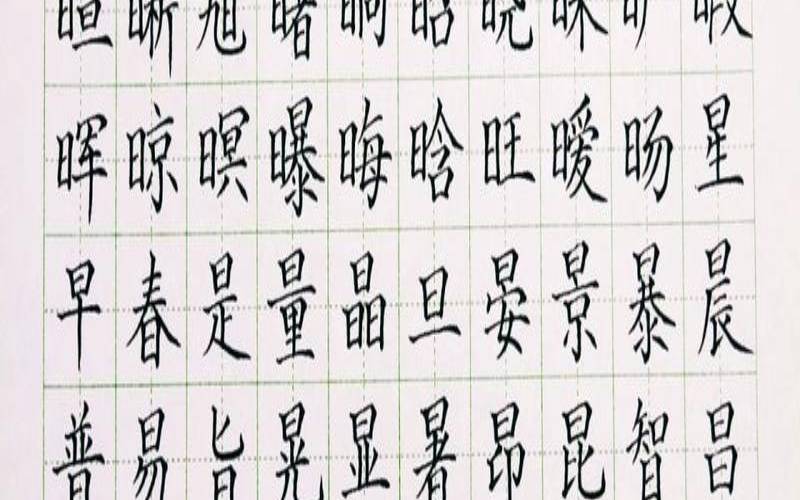 暄晰旭曙晌昭晓昧旷暇
晖晾暝曝晦晗旺暧旸星
早春是量晶旦晏景暴晨
普易旨晃显暑昂昆智昌